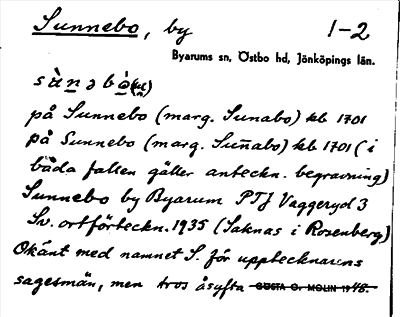 Sunnebo, by 1-2
Byarums sn, Östbo hd, Jönköpings län.
på Sunnebo (marg. Sunabo) kb 1701
på Sunnebo (marg. Suñabo) kb 1701 (i
båda fallen gäller anteckn. begravning)
Sunnebo by Byarum PTJ Vaggeryd 3
Sv. ortförteckn. 1935 (Saknas i Rosenberg)
Okänt med namnet S. för upptecknarens
sagesmän, men tros åsyfta GÖSTA O. MOLIN 1948.